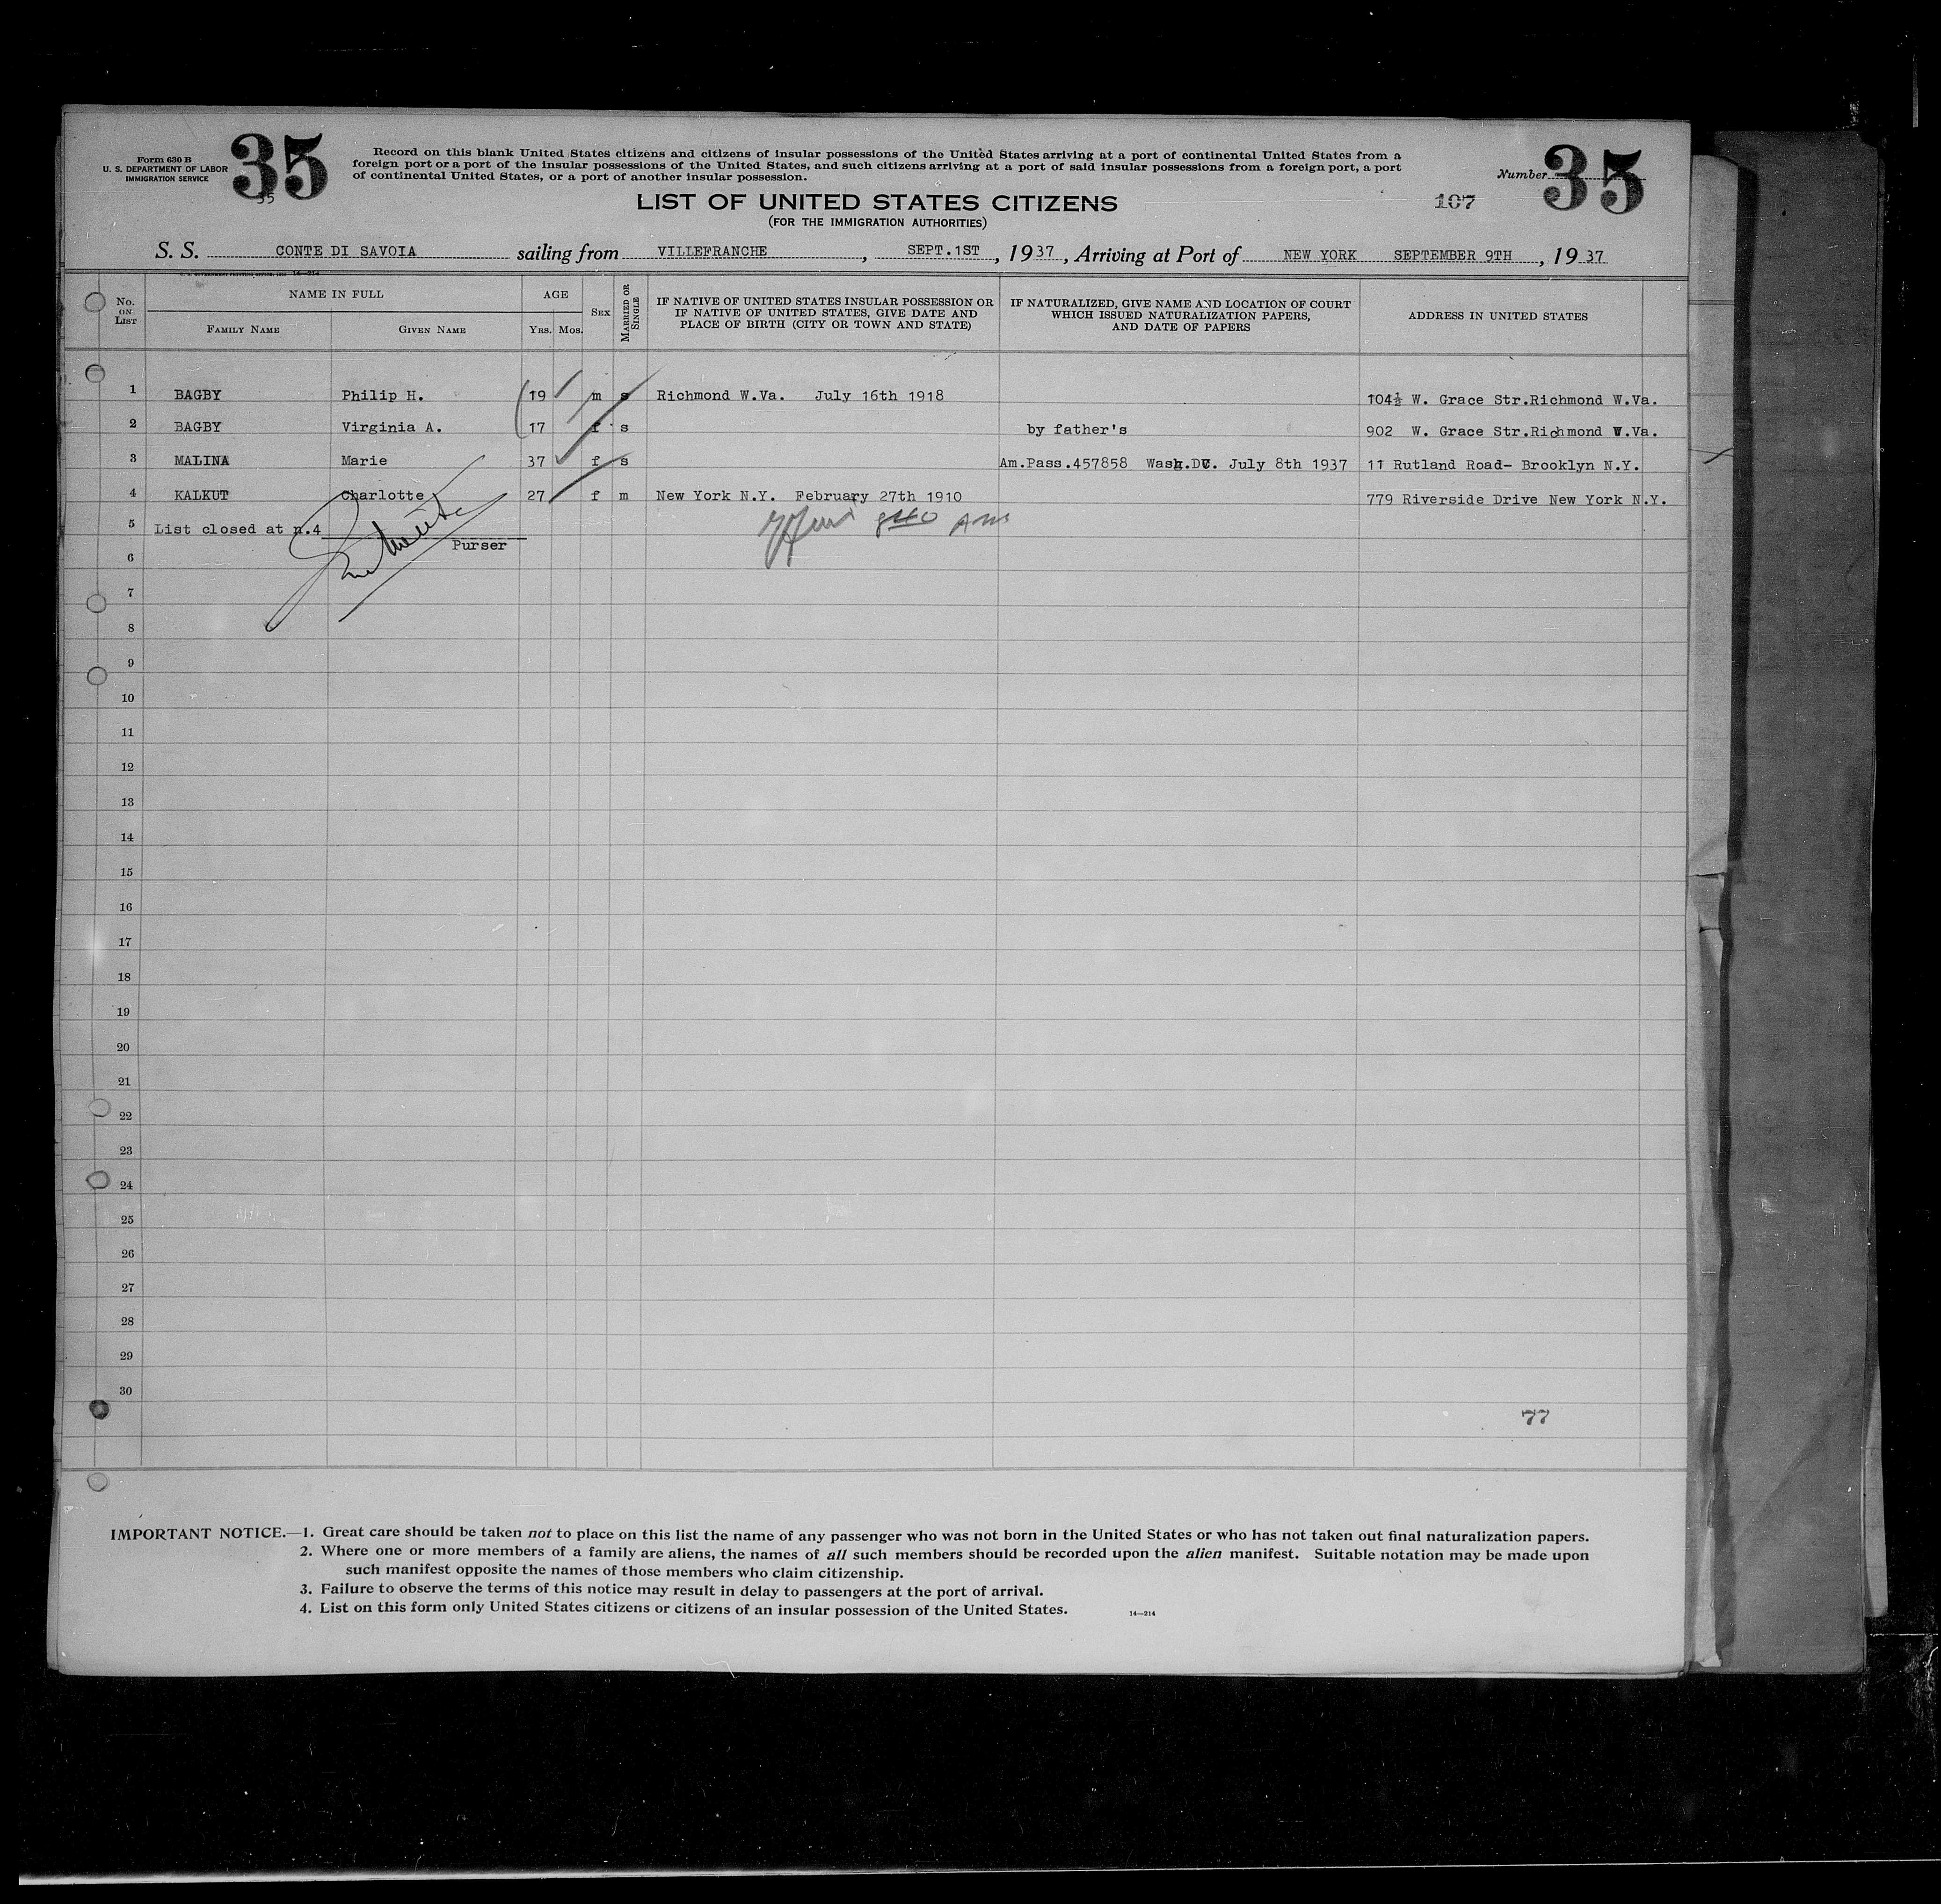 Form 630 B
U. S. DEPARTMENT OF LABOR
IMMIGRATION SERVICE
35
35
Record on this blank United States citizens and citizens of insular possessions of the United States arriving at a port of continental United States from a
foreign port or a port of the insular possessions of the United States, and such citizens arriving at a port of said insular possessions from a foreign port, a port
of continental United States, or a port of another insular possession.
Number 35
107
LIST OF UNITED STATES CITIZENS
(FOR THE IMMIGRATION AUTHORITIES)
S. S. CONTE DI SAVOIA sailing from VILLEFRANCHE, SEPT.1ST, 1937, Arriving at Port of NEW YORK SEPTEMBER 9TH, 1937
No. ON LIST
NAME IN FULL
FAMILY NAME
GIVEN NAME
AGE
YRS. MOS.
SEX
MARRIED OR SINGLE
IF NATIVE OF UNITED STATES INSULAR POSSESSION OR
IF NATIVE OF UNITED STATES, GIVE DATE AND
PLACE OF BIRTH (CITY OR TOWN AND STATE)
IF NATURALIZED, GIVE NAME AND LOCATION OF COURT
WHICH ISSUED NATURALIZATION PAPERS,
AND DATE OF PAPERS
ADDRESS IN UNITED STATES
1 BAGBY Philip H. 19 m s Richmond W.Va. July 16th 1918 104½ W. Grace Str.Richmond W.Va.
2 BAGBY Virginia A. 17 f s by father's 902 W. Grace Str.Richmond W.Va.
3 MALINA Marie 37 f s Am.Pass.457858 Wash.DC. July 8th 1937 11 Rutland Road- Brooklyn N.Y.
4 KALKUT Charlotte 27 f m New York N.Y. February 27th 1910 779 Riverside Drive New York N.Y.
5 List closed at n.4
Purser
6
7
8
9
10
11
12
13
14
15
16
17
18
19
20
21
22
23
24
25
26
27
28
29
30
77
IMPORTANT NOTICE.—1. Great care should be taken not to place on this list the name of any passenger who was not born in the United States or who has not taken out final naturalization papers.
2. Where one or more members of a family are aliens, the names of all such members should be recorded upon the alien manifest. Suitable notation may be made upon
such manifest opposite the names of those members who claim citizenship.
3. Failure to observe the terms of this notice may result in delay to passengers at the port of arrival.
4. List on this form only United States citizens or citizens of an insular possession of the United States.
14—214